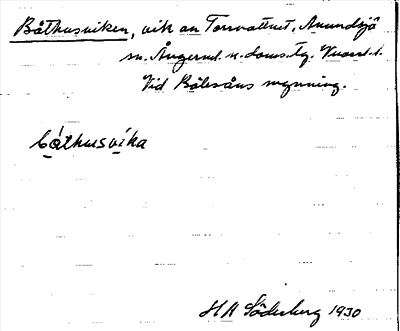 Båthusviken, vik av Torrvattnet, Anundsjö
sn. Ångerml. n. doms. tg.
Vid Bölesåns mynning.
båthusvika
HA Söderberg 1930